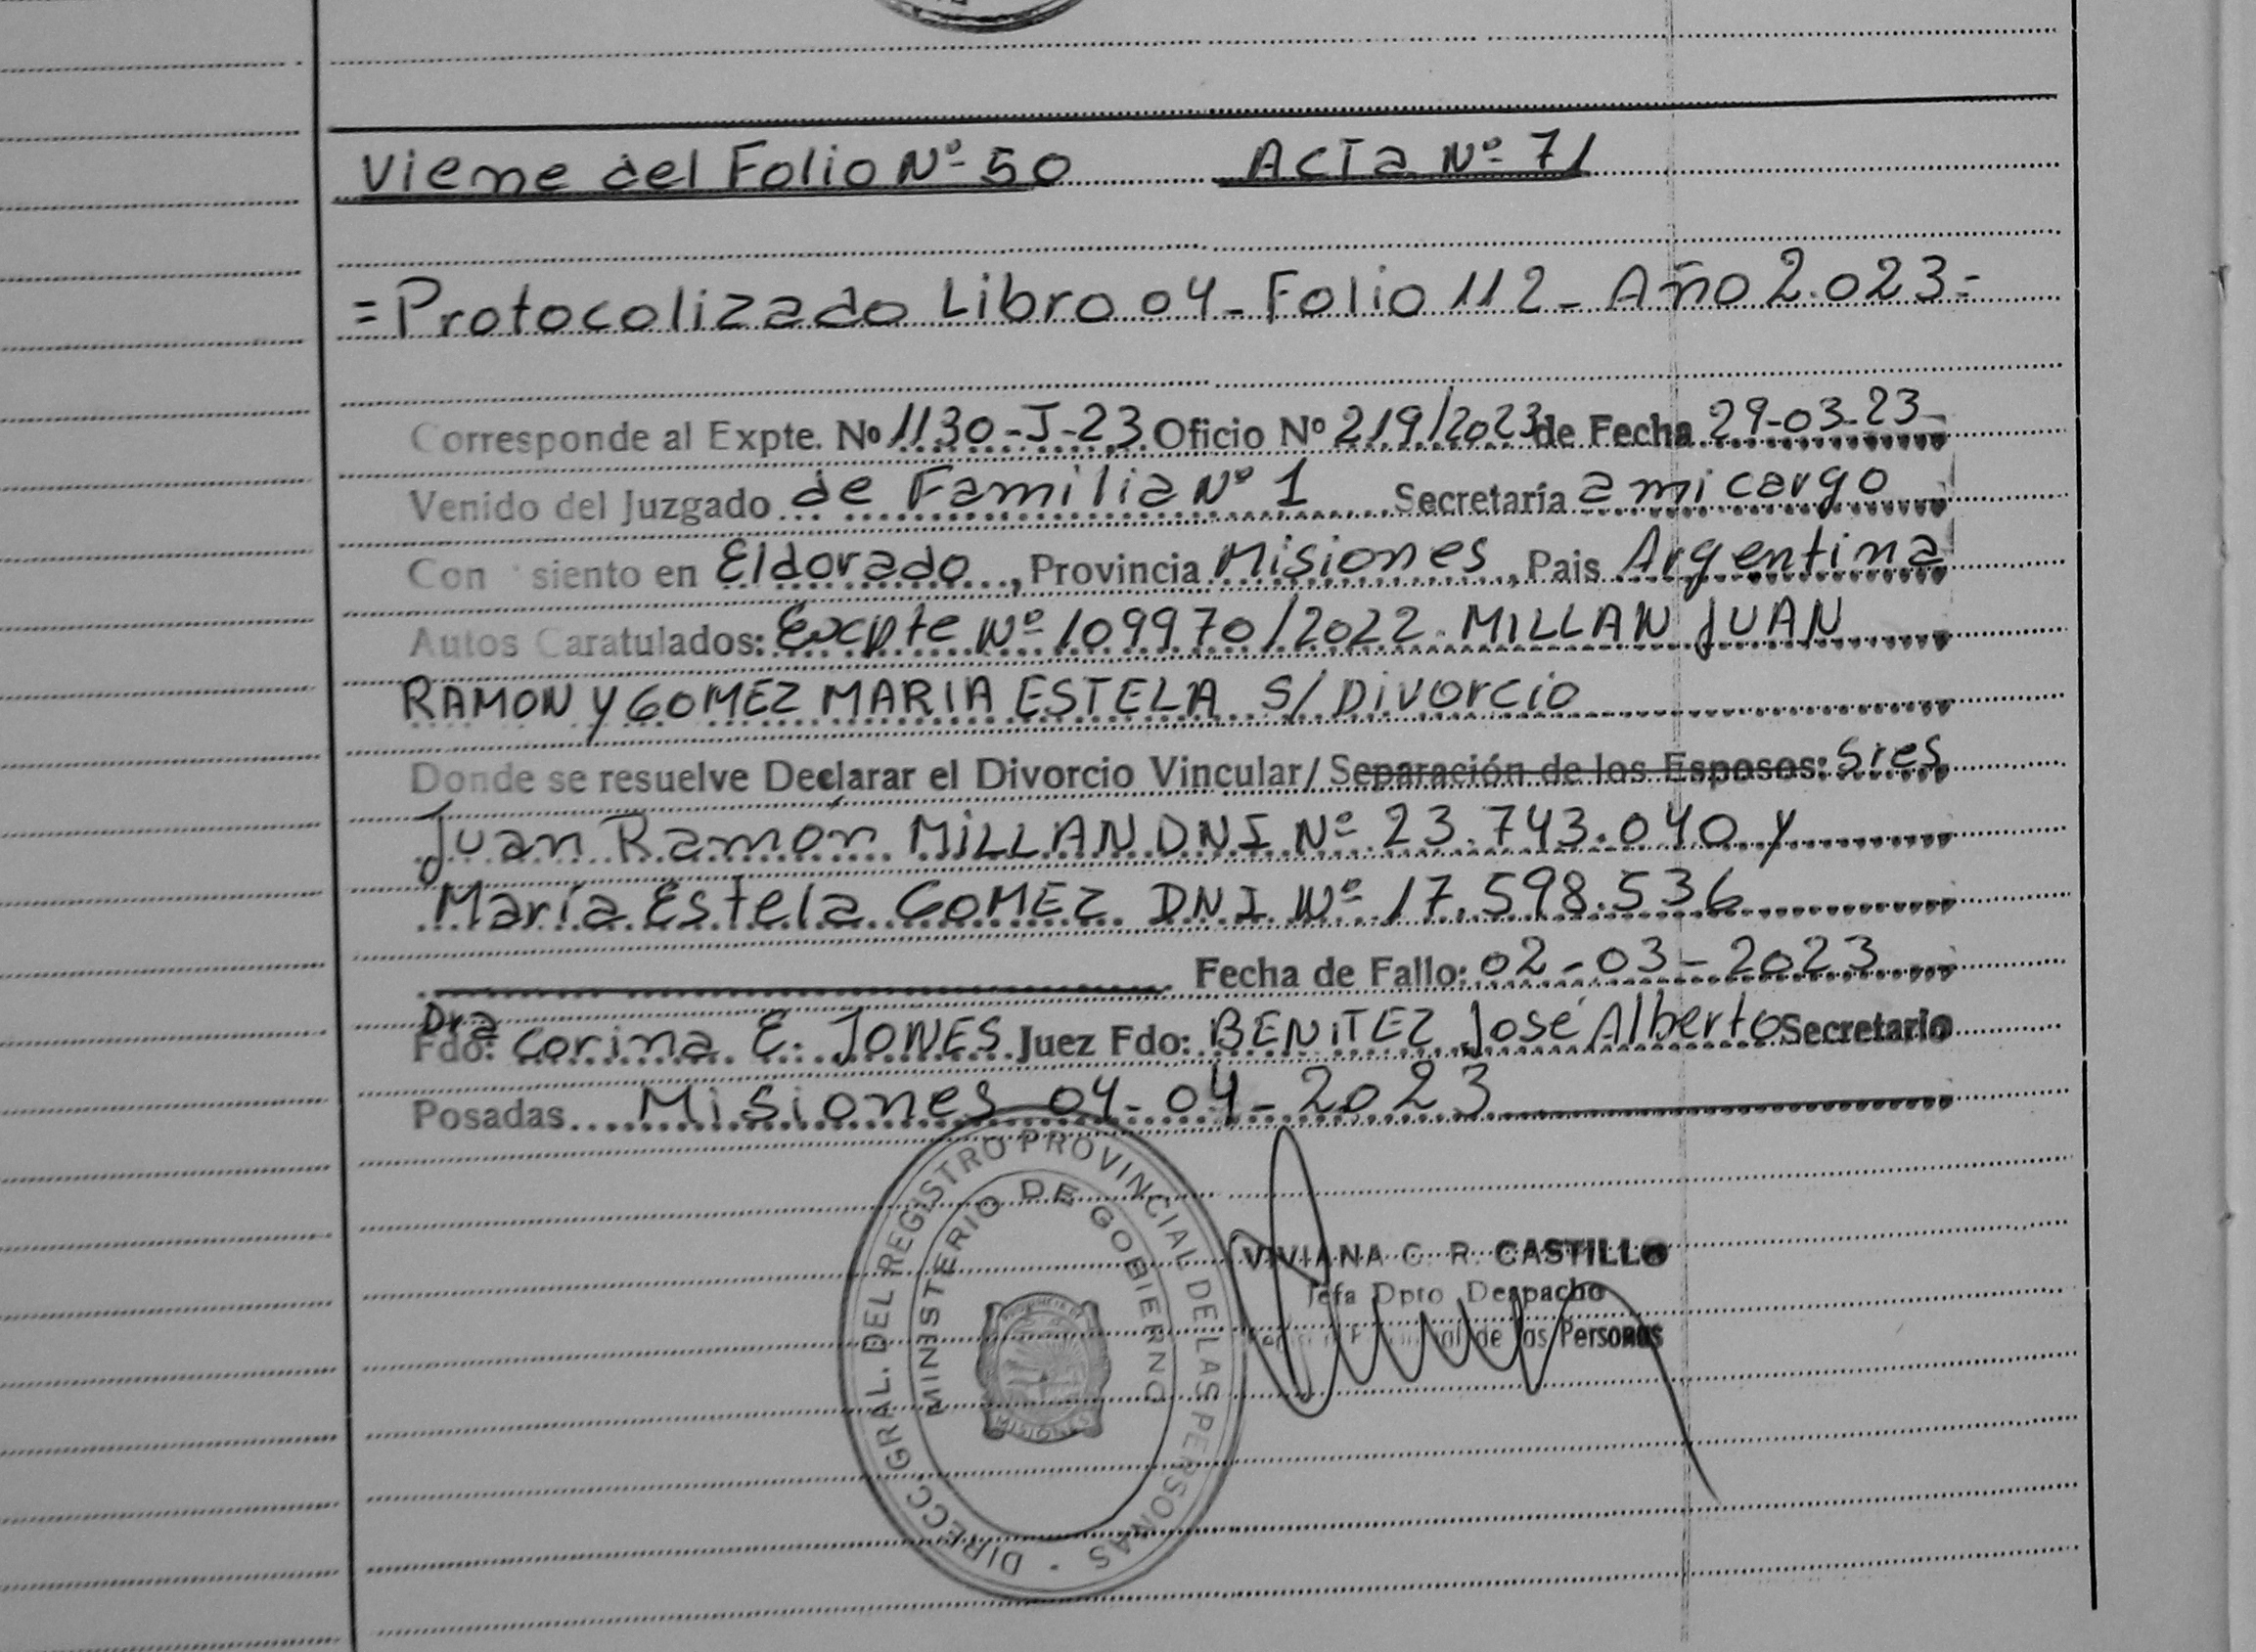 Viene del Folio Nº 50 Acta Nº 71
= Protocolizado Libro 04 - Folio 112 - Año 2.023 =
Corresponde al Expte. Nº 1130-J-23 Oficio Nº 219/2023 de Fecha 29-03-23
Venido del Juzgado de Familia Nº 1 Secretaría a mi cargo
Con siento en Eldorado, Provincia Misiones, Pais Argentina
Autos Caratulados: Excpte Nº 109970/2022. MILLAN JUAN
RAMON Y GOMEZ MARIA ESTELA S/ Divorcio
Donde se resuelve Declarar el Divorcio Vincular/ Separación de los Esposos: Sres
Juan Ramón MiLLAN DNI Nº 23.743.040 y
María Estela GOMEZ DNI Nº 17.598.536
Fecha de Fallo: 02-03-2023
Dra
Fdo: Corina E. JONES Juez Fdo: BENiTEZ José Alberto Secretario
Posadas Misiones 04-04-2023
DIRECC. GRAL. DEL REGISTRO PROVINCIAL DE LAS PERSONAS
MINISTERIO DE GOBIERNO
MISIONES
VIVIANA C. R. CASTILLO
Jefa Dpto Despacho
de las Personas